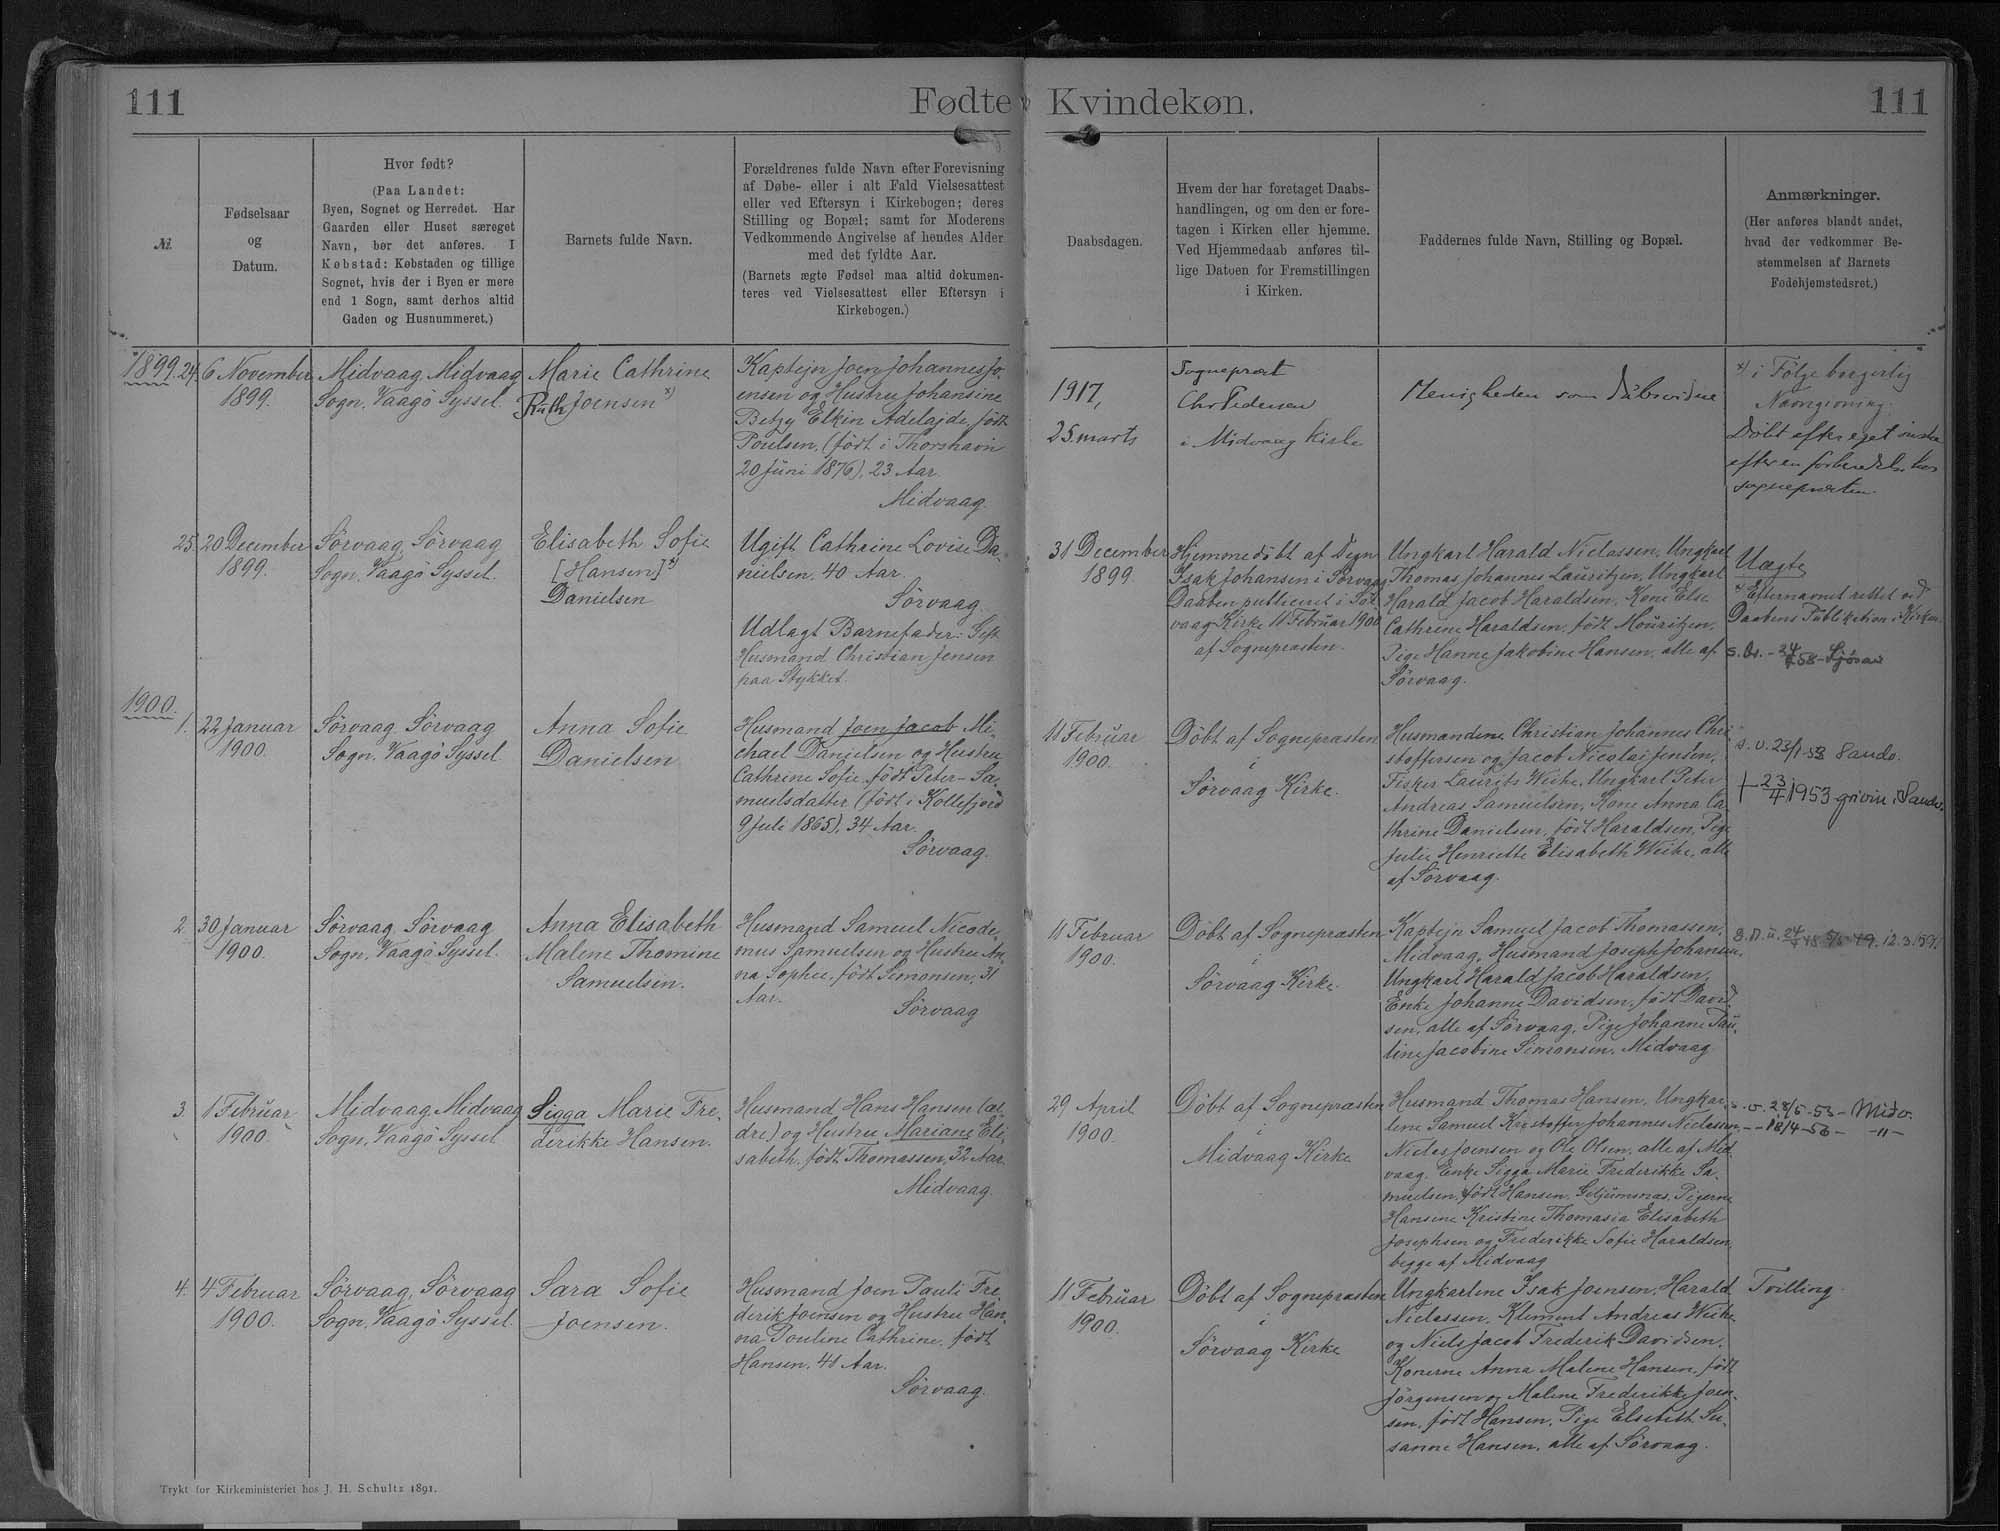 111
Fødte
Kvindekøn.
111
№.
Fødselsaar
og
Datum.
Hvor født?
(Paa Landet:
Byen, Sognet og Herredet. Har
Gaarden eller Huset særeget
Navn, bør det anføres. I
Købstad: Købstaden og tillige
Sognet, hvis der i Byen er mere
end 1 Sogn, samt derhos altid
Gaden og Husnummeret.)
Barnets fulde Navn.
Forældrenes fulde Navn efter Forevisning
af Døbe- eller i alt Fald Vielsesattest
eller ved Eftersyn i Kirkebogen; deres
Stilling og Bopæl; samt for Moderens
Vedkommende Angivelse af hendes Alder
med det fyldte Aar.
(Barnets ægte Fødsel maa altid dokumen-
teres ved Vielsesattest eller Eftersyn i
Kirkebogen.)
Daabsdagen.
Hvem der har foretaget Daabs-
handlingen, og om den er fore-
tagen i Kirken eller hjemme.
Ved Hjemmedaab anføres til-
lige Datoen for Fremstillingen
i Kirken.
Faddernes fulde Navn, Stilling og Bopæl.
Anmærkninger.
(Her anføres blandt andet,
hvad der vedkommer Be-
stemmelsen af Barnets
Fødehjemstedsret.)
1899. 24.
6 November
1899.
Midvaag, Midvaag
Sogn, Vaagö Syssel.
Marie Cathrine
Ruth Joensen x)
Kaptejn Joen Johannes Jo-
ensen og Hustru Johansine
Betzy Elkin Adelajde, født
Poulsen, (født i Thorshavn
20 Juni 1876), 23 Aar.
Midvaag.
1917,
25. marts
Sognepræst
Chr Pedersen
i Midvaag Kirke
Menigheden som Dåbsvidne
x) i Følge borgerlig
Navngivning.
Döbt efter eget ønske
efter en forberedelse hos
sognepræsten.
25.
20 December
1899.
Sörvaag, Sörvaag
Sogn, Vaagö Syssel.
Elisabeth Sofie
[Hansen] x)
Danielsen
Ugift Cathrine Lovise Da-
nielsen, 40 Aar.
Sörvaag.
Udlagt Barnefader: Gift
Husmand Christian Jensen
paa Stykket.
31 December
1899.
Hjemmedöbt af Degn
Isak Johansen i Sörvaag
Daaben publiceret i Sör-
vaag Kirke 11 Februar 1900
af Sognepræsten.
Ungkarl Harald Nielassen, Ungkarl
Thomas Johannes Lauritzen, Ungkarl
Harald Jacob Haraldsen, Kone Else
Cathrine Haraldsen, født Mouritzen,
Pige Hanne Jakobine Hansen, alle af
Sörvaag.
Uægte
x) Efternavnet rettet ved
Daabens Publikation i Kirken.
1900.
1.
22 Januar
1900.
Sörvaag, Sörvaag
Sogn, Vaagö Syssel
Anna Sofie
Danielsen
Husmand Joen Jacob Mi-
chael Danielsen og Hustru
Cathrine Sofie, født Peter-Sa-
muelsdatter (født i Kollefjord
9 Juli 1865), 34 Aar.
Sörvaag.
11 Februar
1900.
Döbt af Sognepræsten
i
Sörvaag Kirke.
Husmændene Christian Johannes Chri-
stoffersen og Jacob Nicolai Jensen,
Fisker Laurits Weihe, Ungkarl Peter
Andreas Samuelsen, Kone Anna Ca-
thrine Danielsen, født Haraldsen, Pige
Julie Henriette Elisabeth Weihe, alle
af Sörvaag.
s. v. 23/1-53 Sandv.
† 23/4 1953 grivin, Sandv.
2.
30 Januar
1900.
Sörvaag, Sörvaag
Sogn, Vaagö Syssel.
Anna Elisabeth
Malene Thomine
Samuelsen.
Husmand Samuel Nicode-
mus Samuelsen og Hustru An-
na Sophie, født Simonsen, 31
Aar.
Sörvaag
11 Februar
1900.
Döbt af Sognepræsten
i
Sörvaag Kirke.
Kaptejn Samuel Jacob Thomassen,
Midvaag, Husmand Joseph Johansen,
Ungkarl Harald Jacob Haraldsen,
Enke Johanne Davidsen, født David-
sen, alle af Sörvaag, Pige Johanne Pau-
line Jacobine Simonsen, Midvaag
3.
1 Februar
1900.
Midvaag, Midvaag
Sogn, Vaagö Syssel
Sigga Marie Fre-
derikke Hansen.
Husmand Hans Hansen (æl-
dre) og Hustru Mariane Eli-
sabeth, født Thomassen, 32 Aar.
Midvaag.
29 April
1900.
Döbt af Sognepræsten
i
Midvaag Kirke
Husmand Thomas Hansen, Ungkar-
lene Samuel Kristoffer Johannes Nielassen,
Niels Joensen og Ole Olsen, alle af Mid-
vaag. Enke Sigga Marie Frederikke Sa-
muelsen, født Hansen, Pigerne
Hansine Kristine Thomasia Elisabeth
Josephsen og Frederikke Sofie Haraldsen,
begge af Midvaag
s. v. 28/5-53- Midv.
-- 18/4-56- -"-
4.
4 Februar
1900.
Sörvaag, Sörvaag
Sogn, Vaagö Syssel
Sara Sofie
Joensen.
Husmand Joen Pauli Fre-
derik Joensen og Hustru Han-
na Pouline Cathrine, født
Hansen, 41 Aar.
Sörvaag.
11 Februar
1900.
Döbt af Sognepræsten
i
Sörvaag Kirke
Ungkarlene Isak Joensen, Harald
Nielassen, Klement Andreas Weihe
og Niels Jacob Frederik Davidsen,
Konerne Anna Malene Hansen, født
Jörgensen og Malene Frederikke Joen-
sen, født Hansen, Pige Elsebeth Su-
sanne Hansen, alle af Sörvaag.
Tvilling.
Trykt for Kirkeministeriet hos J. H. Schultz 1891.